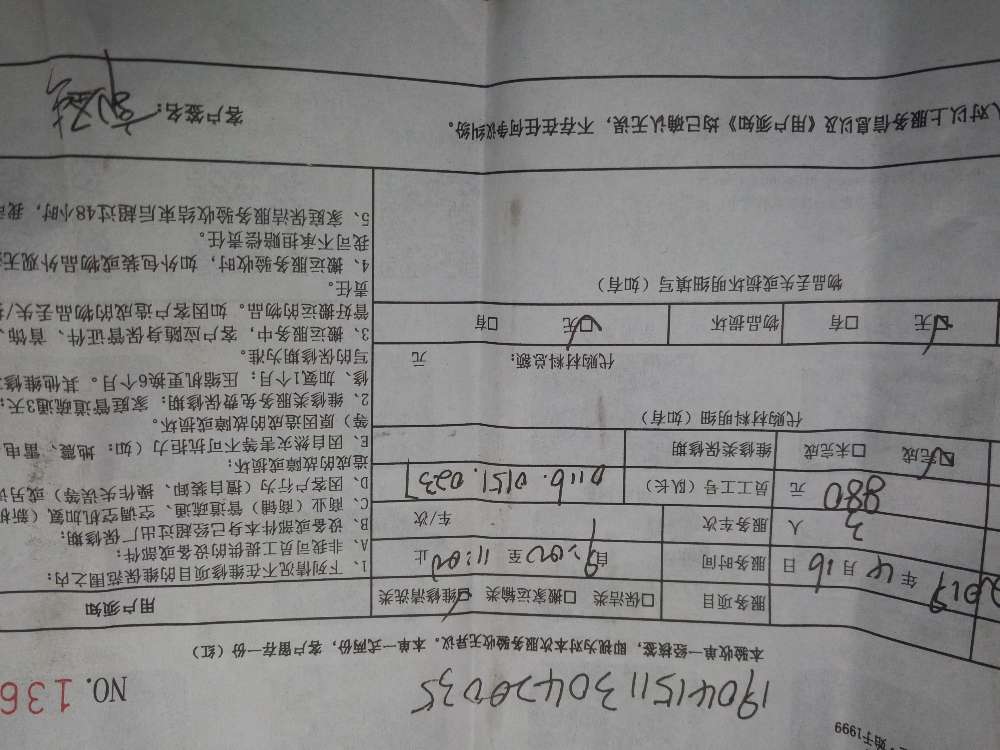 始于1999
NO. 136
19041511304200035
本验收单一经签核，即视为对本次服务验收无异议。本单一式两份，客户留存一份（红）
服务项目 □保洁类 □搬家运输类 ☑维修清洗类 用户须知
2019 年 4 月 16 日 服务时间 自 9:00 至 11:00 止
3 人 服务车次 1 车/次
980 元 员工工号（队长） 0116.0151.0237
☑完成 □未完成 维修类保修期
代购材料明细（如有）
代购材料总额： 元
☑无 □有 物品损坏 ☑无 □有
物品丢失或损坏明细填写（如有）
1、下列情况不在维修项目的维保范围之内：
A、非我司员工提供的设备或部件；
B、设备或部件本身已经超过出厂保修期；
C、商业（商铺）管道疏通、空调空机加氨（新机
D、因客户行为（擅自装卸、操作失误等）或另
造成的故障或损坏；
E、因自然灾害等不可抗拒力（如：地震、雷电
等）原因造成的故障或损坏。
2、维修类服务免费保修期：家庭管道疏通3天；
修、加氨1个月；压缩机更换6个月。其他维修
写的保修期为准。
3、搬运服务中，客户应随身保管证件、首饰、
管好搬运的物品。如因客户造成的物品丢失/
责任。
4、搬运服务验收时，如外包装或物品外观无
我司不承担赔偿责任。
5、家庭保洁服务验收结束后超过48小时，我
人对以上服务信息以及《用户须知》均已确认无误，不存在任何争议纠纷。 客户签名：